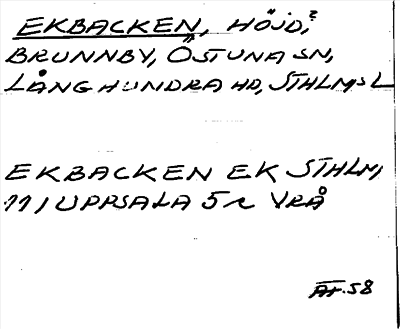 EKBACKEN, HÖJD,?
BRUNNBY, ÖSTUNA SN,
LÅNGHUNDRA HD, STHLMS L
EKBACKEN EK STHLM,
11, UPPSALA 5 r VRÅ
ÄH.58